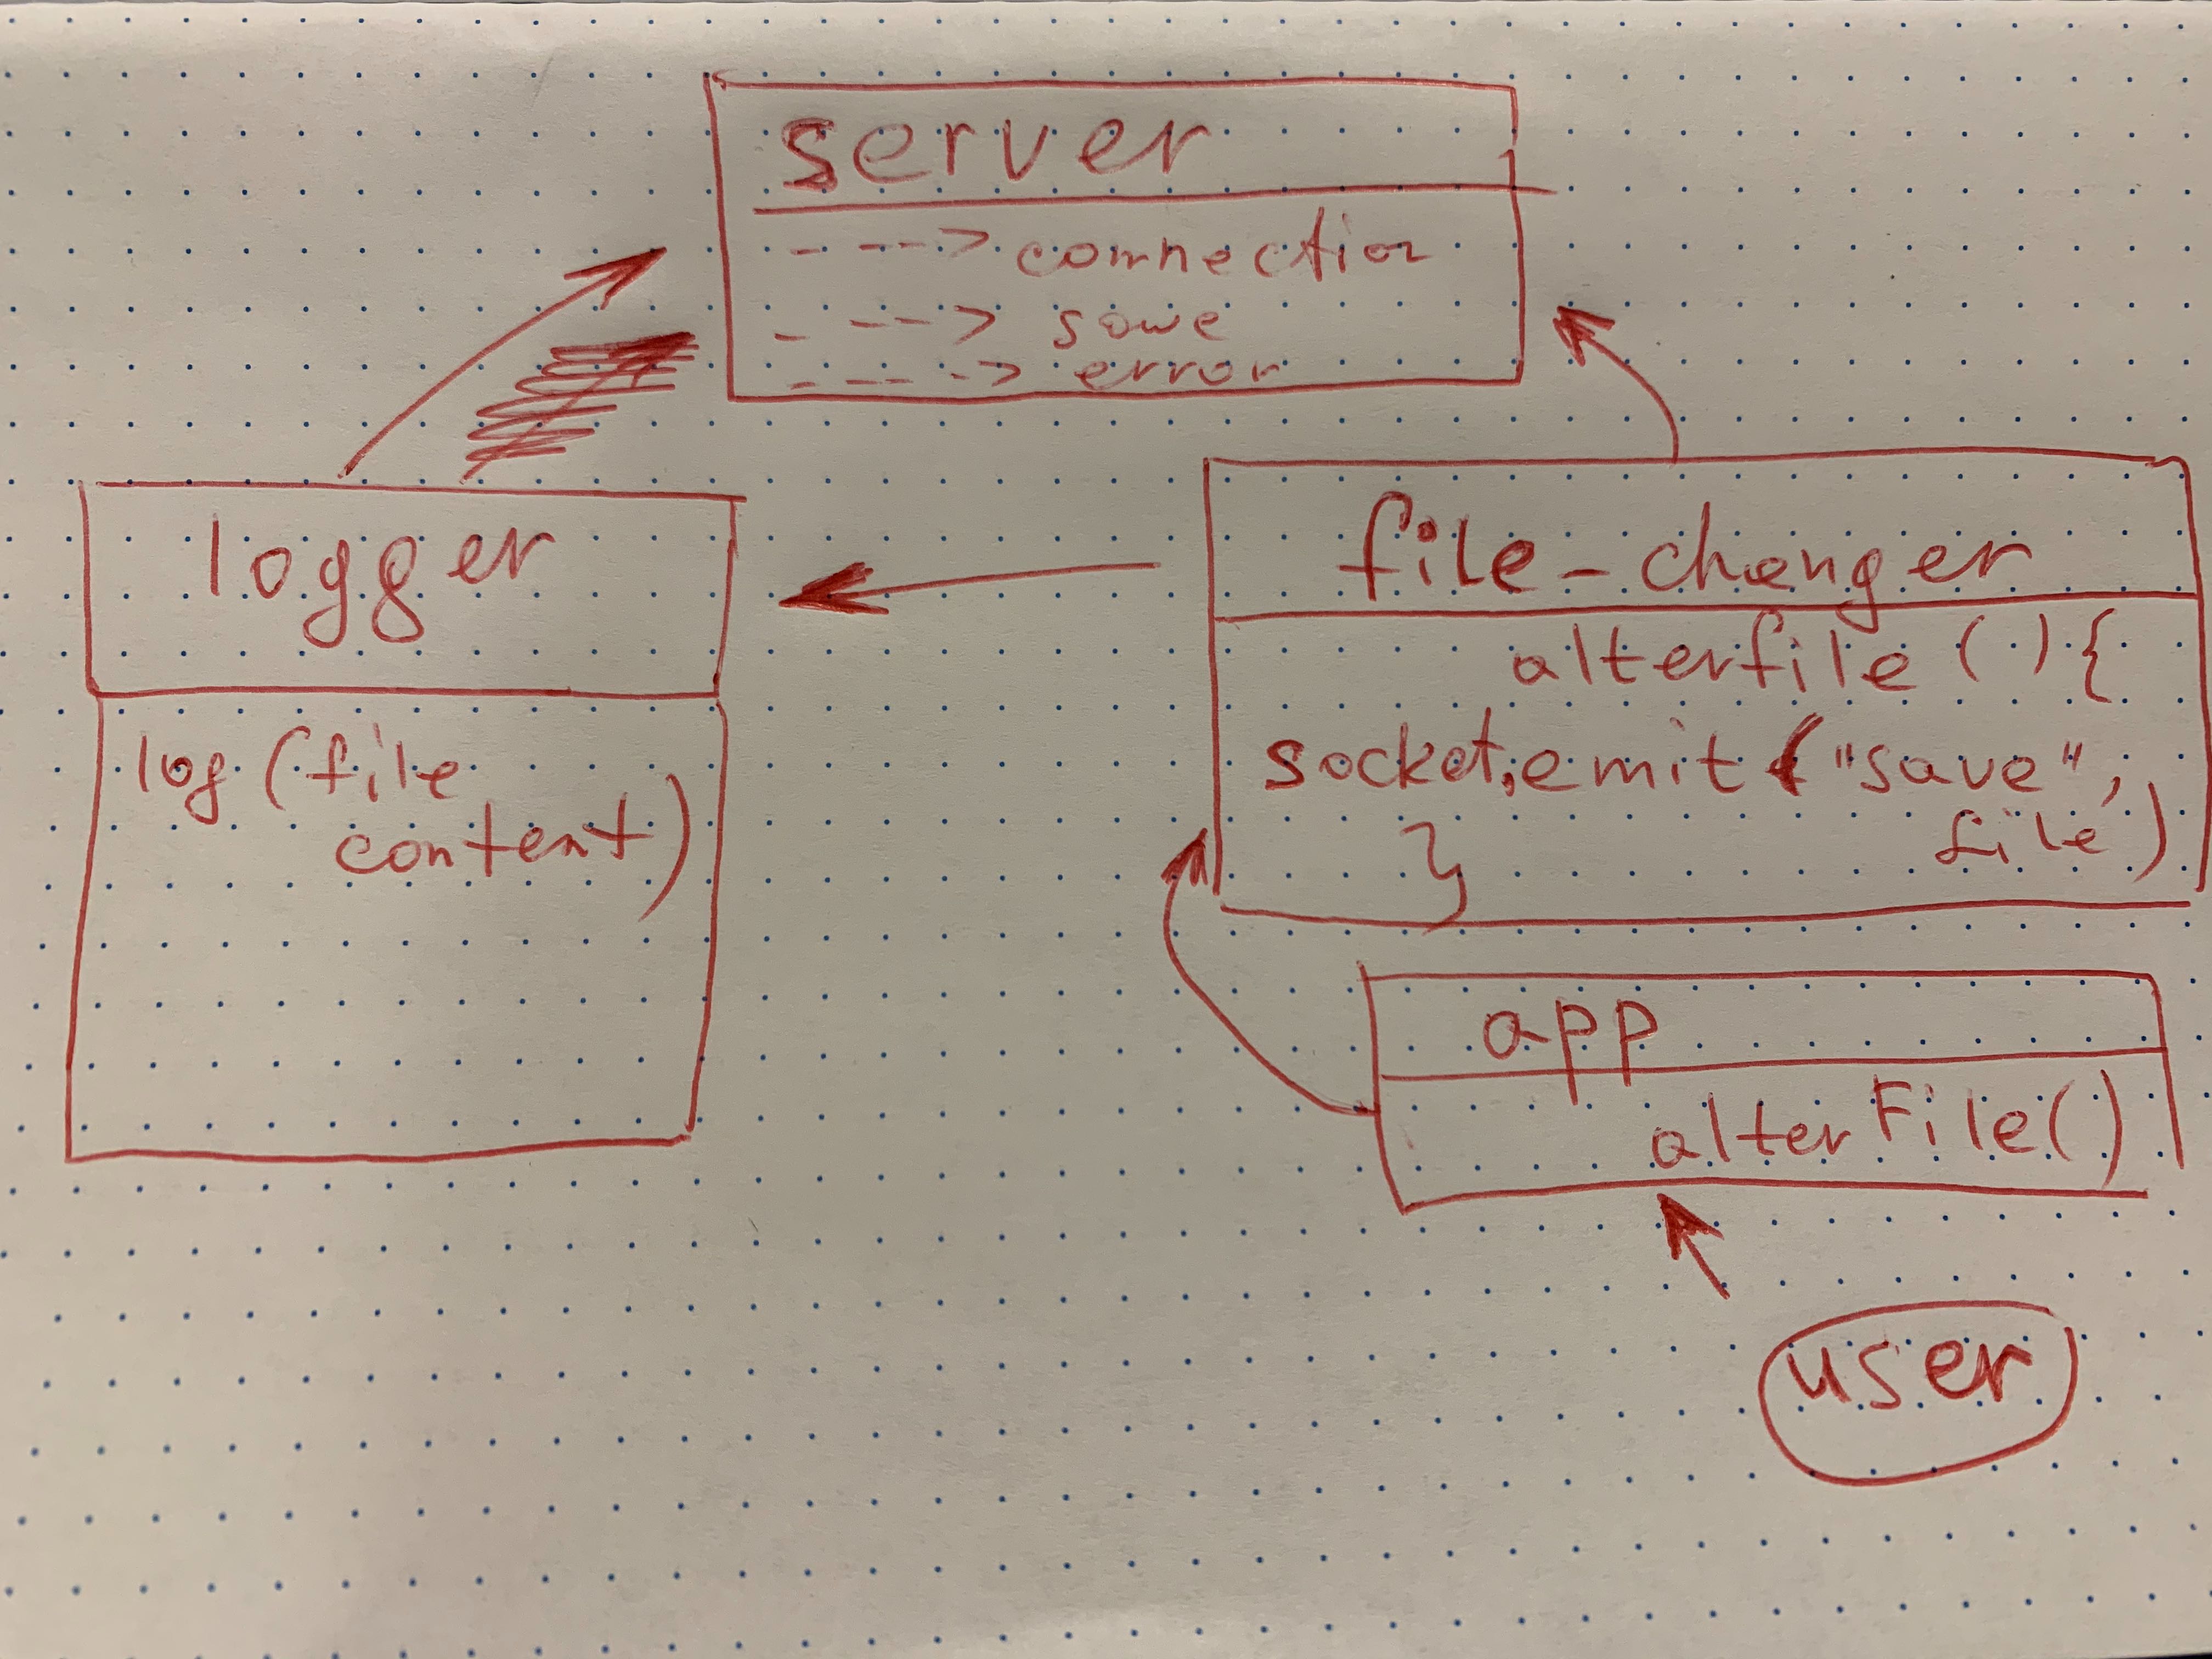 server
- ---> connection
- ---> save
- - - -> error
logger
log (file
content)
file-changer
alterfile () {
socket.emit ("save",
file)
}
app
alterFile()
user